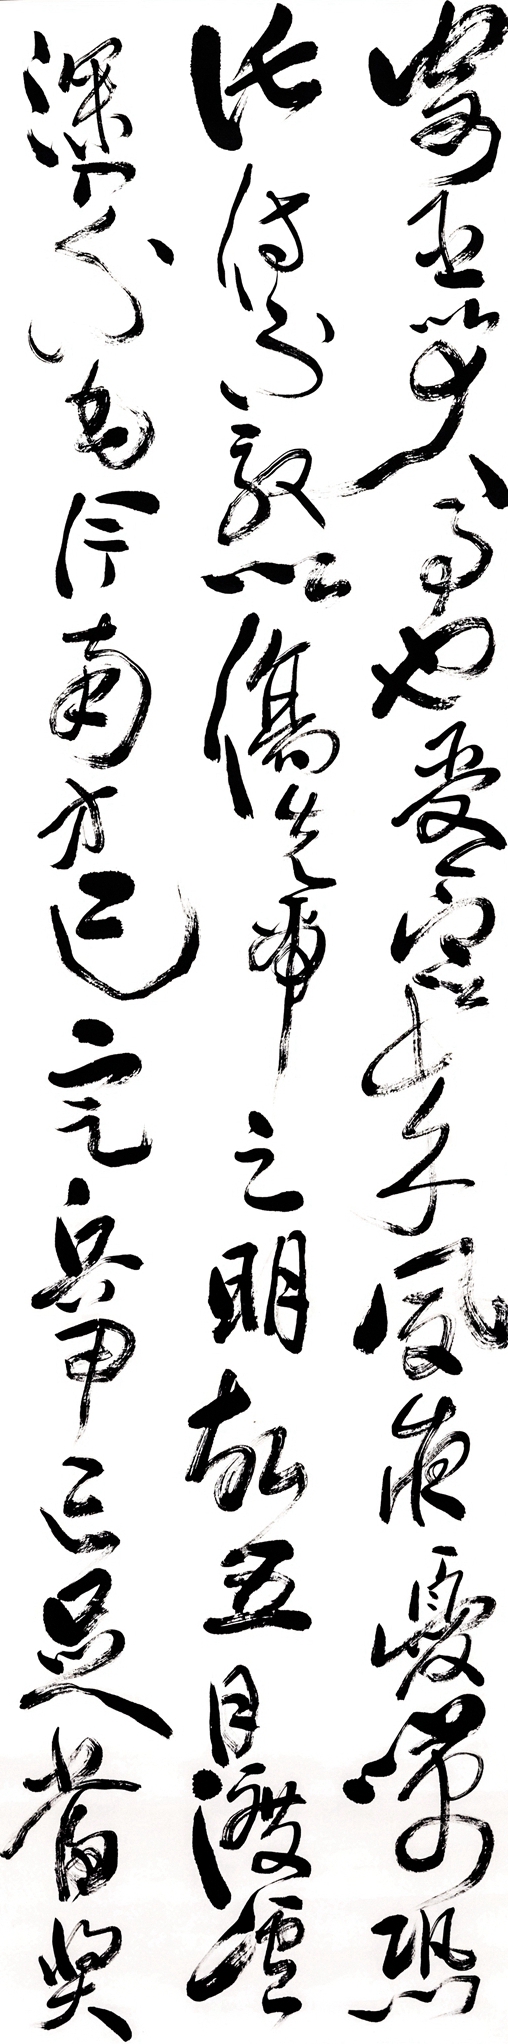 寄臣以大事也受命以来夙夜憂嘆恐
託付不效以傷先帝之明故五月渡瀘
深入不毛今南方已定兵甲已足當獎